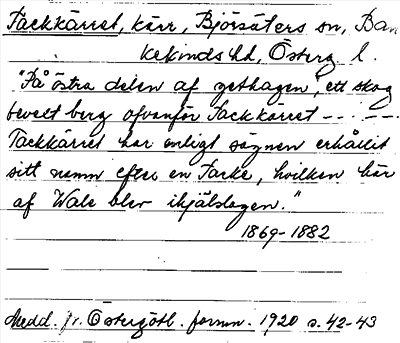 Tackkärret, kärr, Björsäters sn, Ban
kekinds hd, Österg l.
"På östra delen af gethagen, ett skog
bevext berg ofvanför Tackkärret - - - - -
Tackkärret har enligt sägnen erhållit
sitt namn efter en Tacke, hvilken här
af Wale blev ihjälslagen."
1869-1882
Medd. fr. Östergötl. fornm. 1920 s. 42-43